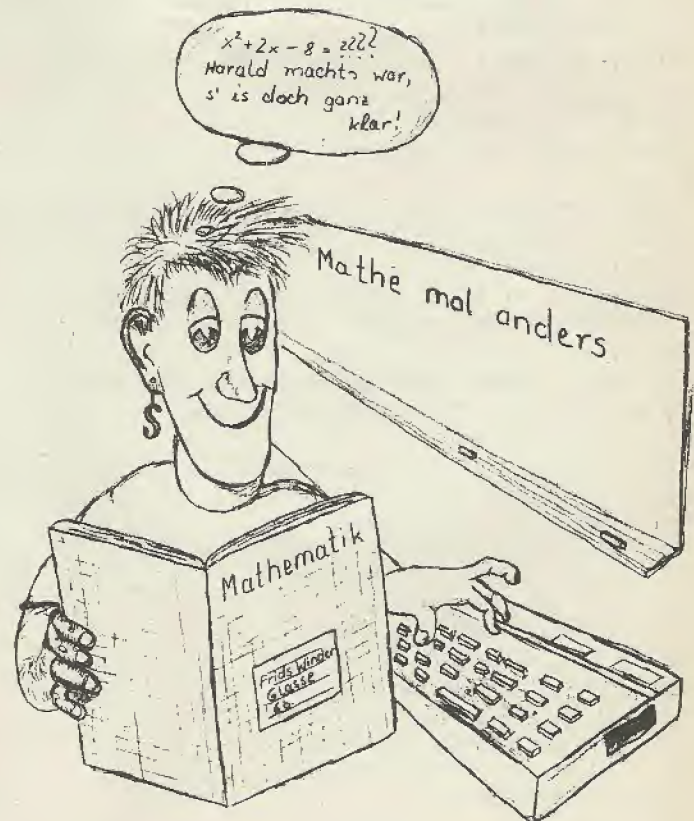 x²+2x-8 = ????
Harald machts wor,
s' is doch ganz
klar!
Mathe mal anders
Mathematik
Frids Winder
Glasse
6b